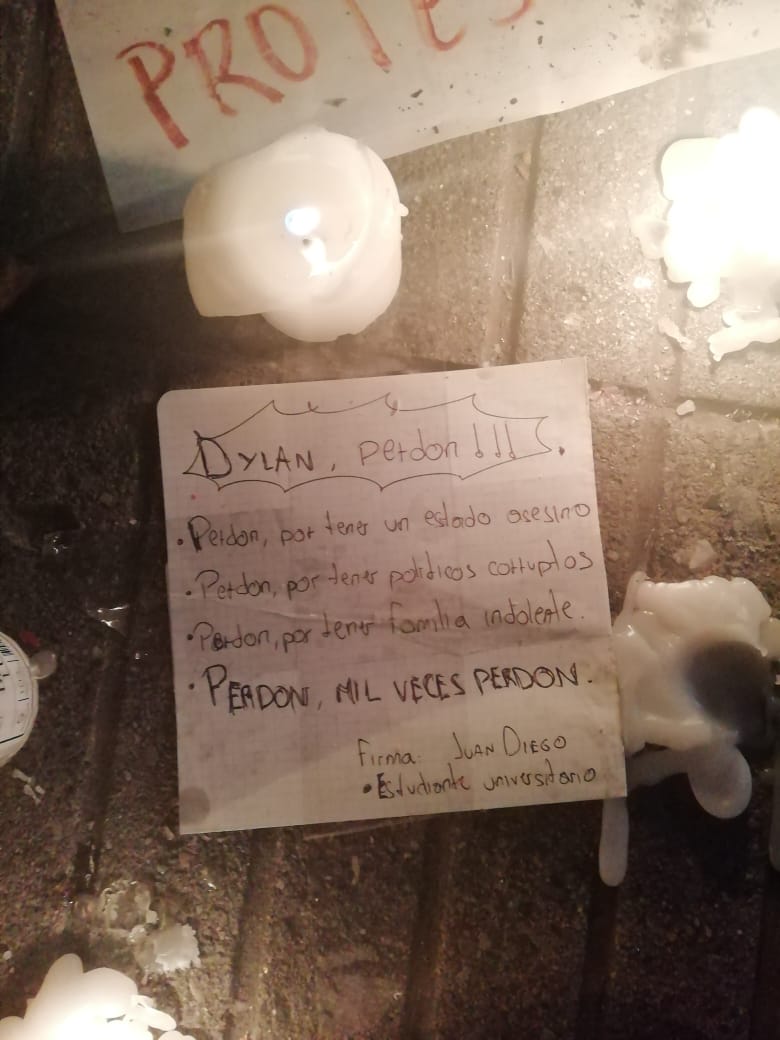 PROTES
DYLAN, perdon!!!.
• Perdon, por tener un estado asesino
• Perdon, por tener politicos corruptos
• Perdon, por tener familia indolente.
• PERDON, MIL VECES PERDON.
Firma: JUAN DIEGO
• Estudiante universitario